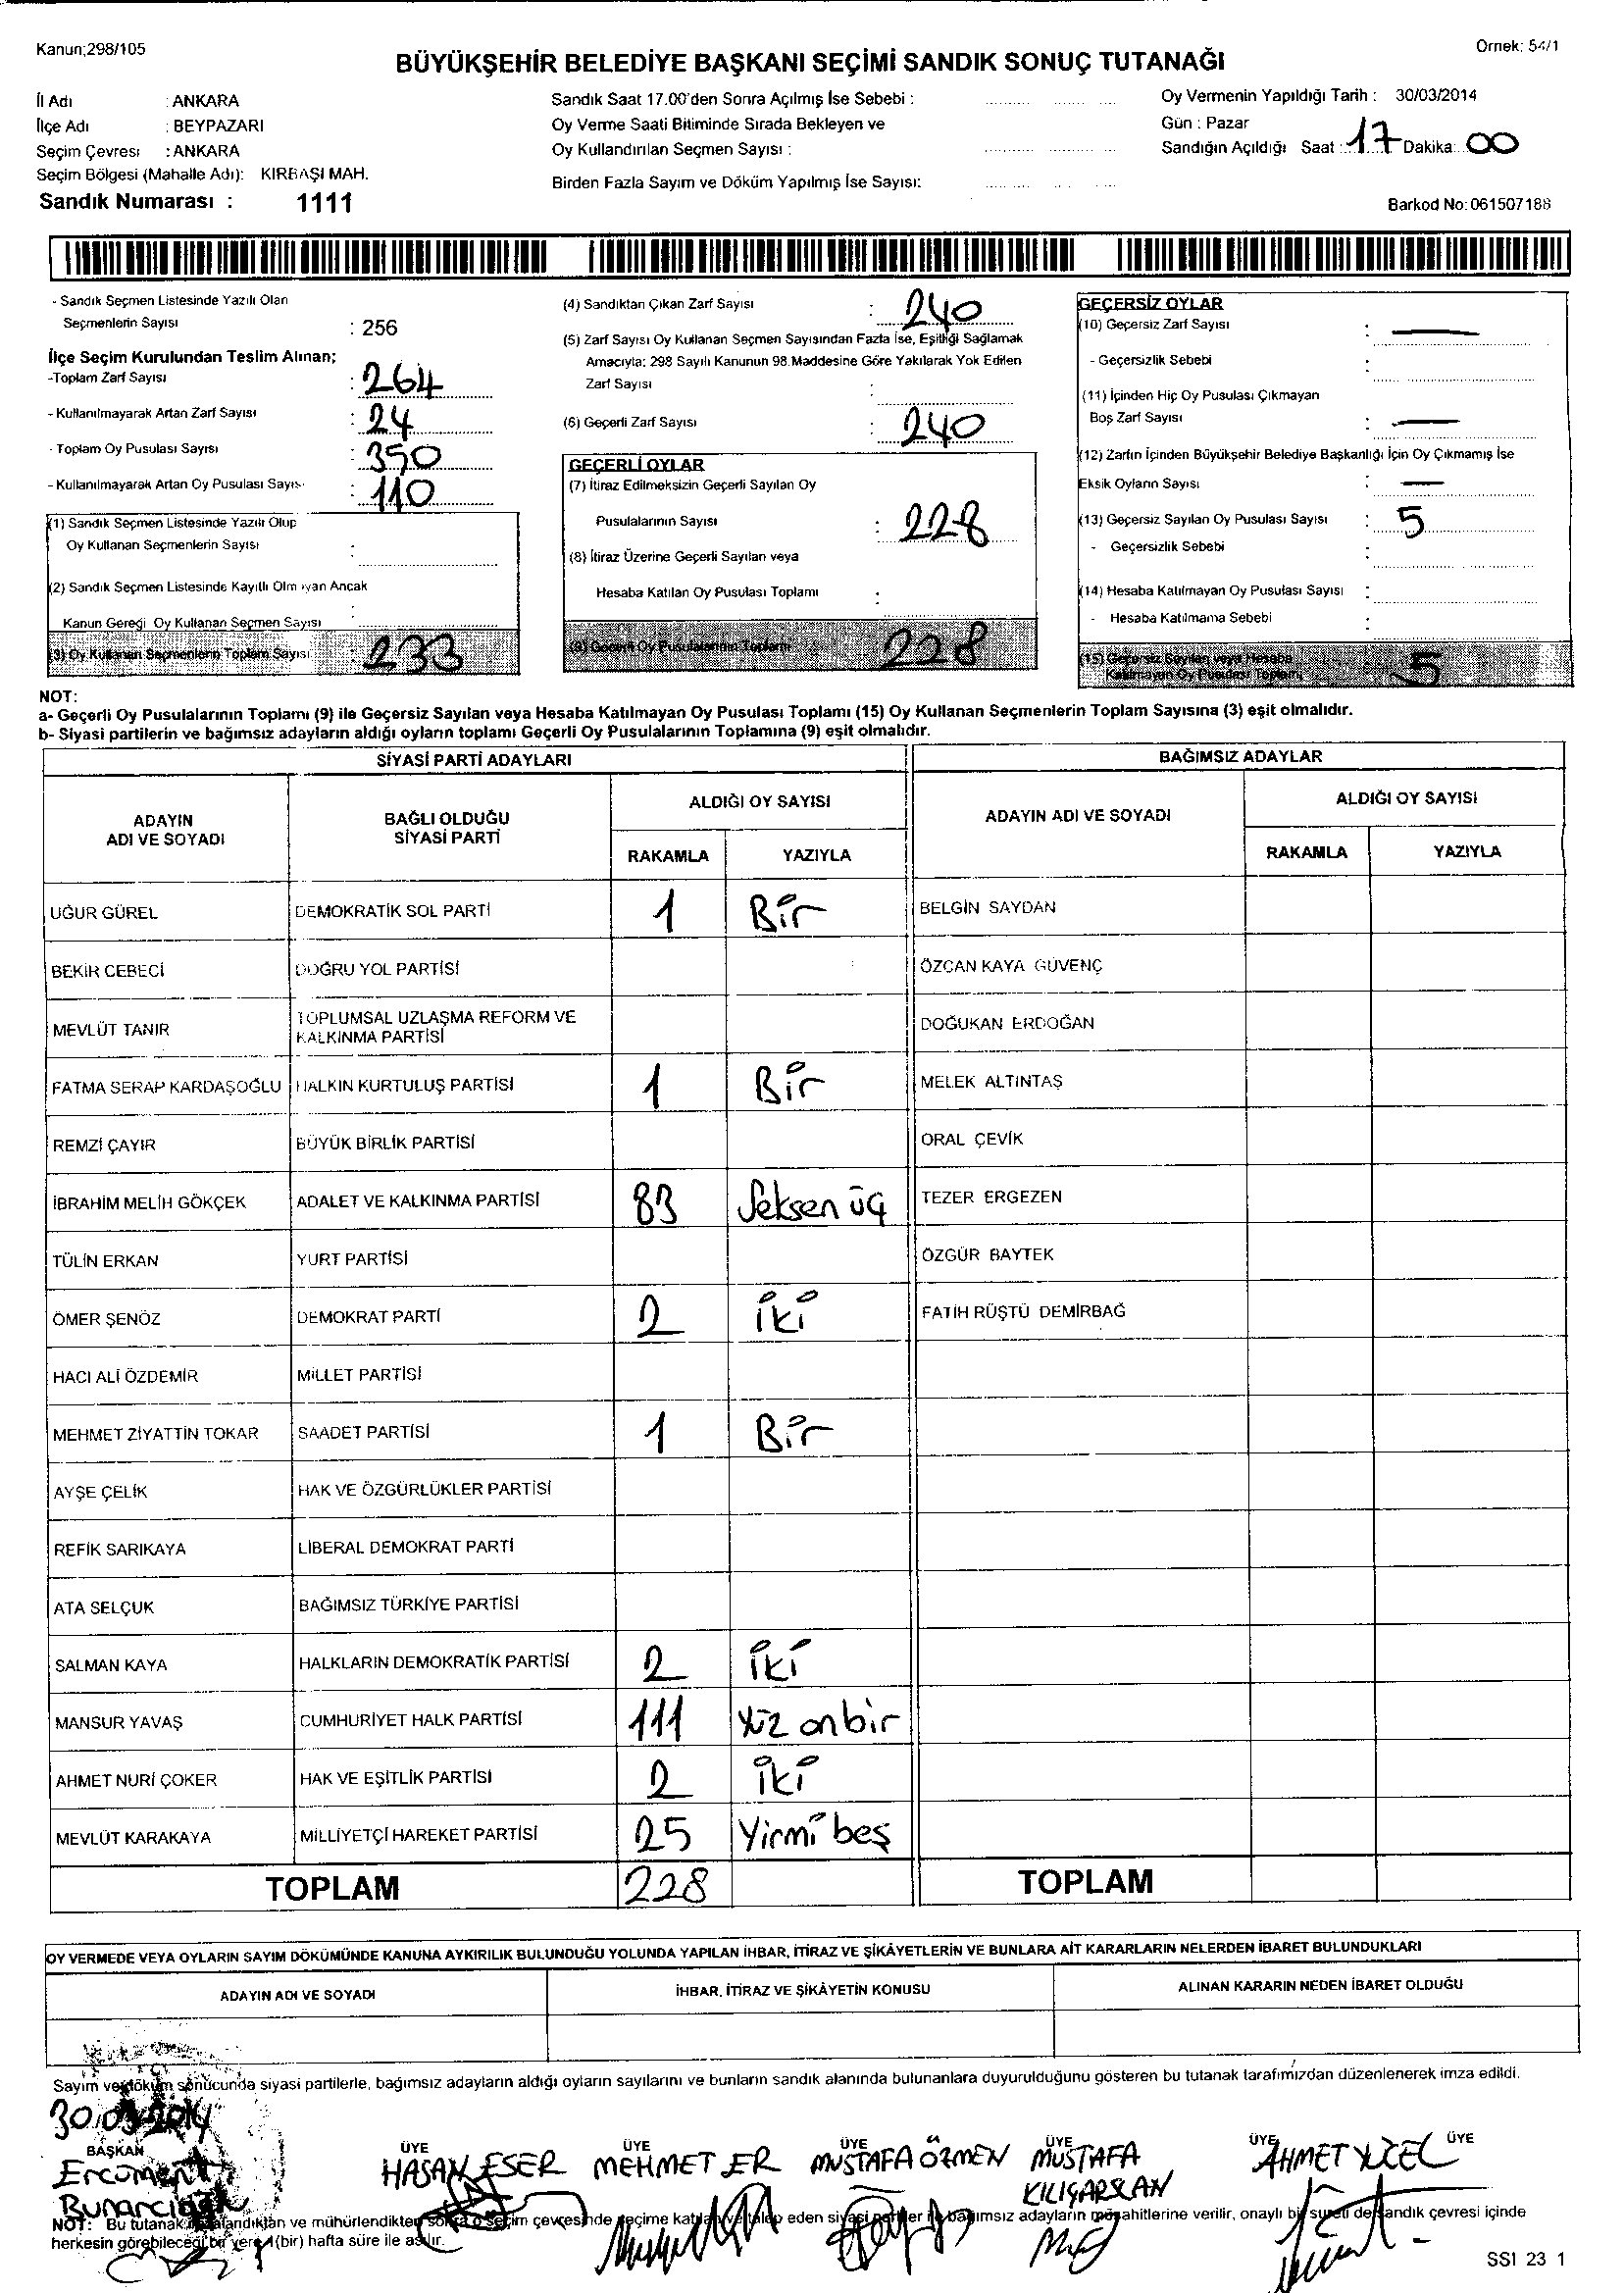 Kanun;298/105
Örnek: 54/1
BÜYÜKŞEHİR BELEDİYE BAŞKANI SEÇİMİ SANDIK SONUÇ TUTANAĞI
İl Adı : ANKARA
İlçe Adı : BEYPAZARI
Seçim Çevresi : ANKARA
Seçim Bölgesi (Mahalle Adı): KIRBAŞI MAH.
Sandık Numarası : 1111
Sandık Saat 17.00'den Sonra Açılmış İse Sebebi :
Oy Verme Saati Bitiminde Sırada Bekleyen ve
Oy Kullandırılan Seçmen Sayısı :
Birden Fazla Sayım ve Döküm Yapılmış İse Sayısı:
Oy Vermenin Yapıldığı Tarih : 30/03/2014
Gün : Pazar
Sandığın Açıldığı Saat : 17 Dakika: 00
Barkod No: 061507188
- Sandık Seçmen Listesinde Yazılı Olan
Seçmenlerin Sayısı : 256
İlçe Seçim Kurulundan Teslim Alınan;
-Toplam Zarf Sayısı : 264
- Kullanılmayarak Artan Zarf Sayısı : 24
- Toplam Oy Pusulası Sayısı : 350
- Kullanılmayarak Artan Oy Pusulası Sayıs : 110
(1) Sandık Seçmen Listesinde Yazılı Olup
Oy Kullanan Seçmenlerin Sayısı :
(2) Sandık Seçmen Listesinde Kayıtlı Olmayan Ancak
Kanun Gereği Oy Kullanan Seçmen Sayısı :
(3) Oy Kullanan Seçmenlerin Toplam Sayısı : 233
(4) Sandıktan Çıkan Zarf Sayısı : 240
(5) Zarf Sayısı Oy Kullanan Seçmen Sayısından Fazla İse, Eşitliği Sağlamak
Amacıyla; 298 Sayılı Kanunun 98.Maddesine Göre Yakılarak Yok Edilen
Zarf Sayısı :
(6) Geçerli Zarf Sayısı : 240
GEÇERLİ OYLAR
(7) İtiraz Edilmeksizin Geçerli Sayılan Oy
Pusulalarının Sayısı : 228
(8) İtiraz Üzerine Geçerli Sayılan veya
Hesaba Katılan Oy Pusulası Toplamı :
(9) Geçerli Oy Pusulalarının Toplamı 228
GEÇERSİZ OYLAR
(10) Geçersiz Zarf Sayısı : —
- Geçersizlik Sebebi :
(11) İçinden Hiç Oy Pusulası Çıkmayan
Boş Zarf Sayısı : —
(12) Zarfın İçinden Büyükşehir Belediye Başkanlığı İçin Oy Çıkmamış İse
Eksik Oyların Sayısı : —
(13) Geçersiz Sayılan Oy Pusulası Sayısı : 5
- Geçersizlik Sebebi :
(14) Hesaba Katılmayan Oy Pusulası Sayısı :
- Hesaba Katılmama Sebebi :
(15) Geçersiz Sayılan veya Hesaba
Katılmayan Oy Pusulası Toplamı 5
NOT:
a- Geçerli Oy Pusulalarının Toplamı (9) ile Geçersiz Sayılan veya Hesaba Katılmayan Oy Pusulası Toplamı (15) Oy Kullanan Seçmenlerin Toplam Sayısına (3) eşit olmalıdır.
b- Siyasi partilerin ve bağımsız adayların aldığı oyların toplamı Geçerli Oy Pusulalarının Toplamına (9) eşit olmalıdır.
SİYASİ PARTİ ADAYLARI
BAĞIMSIZ ADAYLAR
ADAYIN ADI VE SOYADI
BAĞLI OLDUĞU SİYASİ PARTİ
ALDIĞI OY SAYISI
RAKAMLA YAZIYLA
ADAYIN ADI VE SOYADI
ALDIĞI OY SAYISI
RAKAMLA YAZIYLA
UĞUR GÜREL DEMOKRATİK SOL PARTİ 1 Bir BELGİN SAYDAN
BEKİR CEBECİ DOĞRU YOL PARTİSİ ÖZCAN KAYA GÜVENÇ
MEVLÜT TANIR TOPLUMSAL UZLAŞMA REFORM VE KALKINMA PARTİSİ DOĞUKAN ERDOĞAN
FATMA SERAP KARDAŞOĞLU HALKIN KURTULUŞ PARTİSİ 1 Bir MELEK ALTINTAŞ
REMZİ ÇAYIR BÜYÜK BİRLİK PARTİSİ ORAL ÇEVİK
İBRAHİM MELİH GÖKÇEK ADALET VE KALKINMA PARTİSİ 83 Seksen üç TEZER ERGEZEN
TÜLİN ERKAN YURT PARTİSİ ÖZGÜR BAYTEK
ÖMER ŞENÖZ DEMOKRAT PARTİ 2 iki FATİH RÜŞTÜ DEMİRBAĞ
HACI ALİ ÖZDEMİR MİLLET PARTİSİ
MEHMET ZİYATTİN TOKAR SAADET PARTİSİ 1 Bir
AYŞE ÇELİK HAK VE ÖZGÜRLÜKLER PARTİSİ
REFİK SARIKAYA LİBERAL DEMOKRAT PARTİ
ATA SELÇUK BAĞIMSIZ TÜRKİYE PARTİSİ
SALMAN KAYA HALKLARIN DEMOKRATİK PARTİSİ 2 iki
MANSUR YAVAŞ CUMHURİYET HALK PARTİSİ 111 Yüz onbir
AHMET NURİ ÇOKER HAK VE EŞİTLİK PARTİSİ 2 iki
MEVLÜT KARAKAYA MİLLİYETÇİ HAREKET PARTİSİ 25 Yirmi beş
TOPLAM 228 TOPLAM
OY VERMEDE VEYA OYLARIN SAYIM DÖKÜMÜNDE KANUNA AYKIRILIK BULUNDUĞU YOLUNDA YAPILAN İHBAR, İTİRAZ VE ŞİKÂYETLERİN VE BUNLARA AİT KARARLARIN NELERDEN İBARET BULUNDUKLARI
ADAYIN ADI VE SOYADI İHBAR, İTİRAZ VE ŞİKÂYETİN KONUSU ALINAN KARARIN NEDEN İBARET OLDUĞU
Sayım ve döküm sonucunda siyasi partilerle, bağımsız adayların aldığı oyların sayılarını ve bunların sandık alanında bulunanlara duyurulduğunu gösteren bu tutanak tarafımızdan düzenlenerek imza edildi.
30.03.2014
BAŞKAN ÜYE ÜYE ÜYE ÜYE ÜYE ÜYE
Ercüment HASAN ESER MEHMET ER MUSTAFA ÖZMEN MUSTAFA KILIÇARSLAN AHMET YÜCEL
NOT: Bu tutanak imzalandıktan ve mühürlendikten sonra o seçim çevresinde seçime katılan ve talep eden siyasi partiler ile bağımsız adayların müşahitlerine verilir, onaylı bir sureti de sandık çevresi içinde
herkesin görebileceği bir yere 1(bir) hafta süre ile asılır.
SSI 23 1